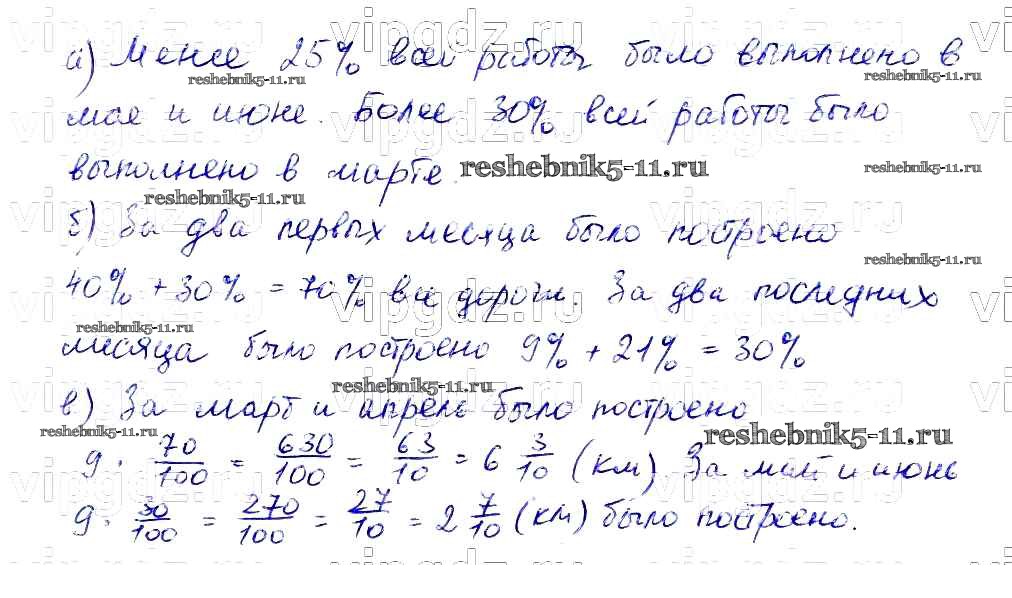 а) Менее 25% всей работы было выполнено в
мае и июне. Более 30% всей работы было
выполнено в марте.
б) За два первых месяца было построено
40% + 30% = 70% все дороги. За два последних
месяца было построено 9% + 21% = 30%
в) За март и апрель было построено
9 · 70/100 = 630/100 = 63/10 = 6 3/10 (км) За май и июнь
9 · 30/100 = 270/100 = 27/10 = 2 7/10 (км) было построено.
reshebnik5-11.ru
reshebnik5-11.ru
reshebnik5-11.ru
reshebnik5-11.ru
reshebnik5-11.ru
reshebnik5-11.ru
reshebnik5-11.ru
reshebnik5-11.ru
reshebnik5-11.ru
reshebnik5-11.ru
vipgdz.ru